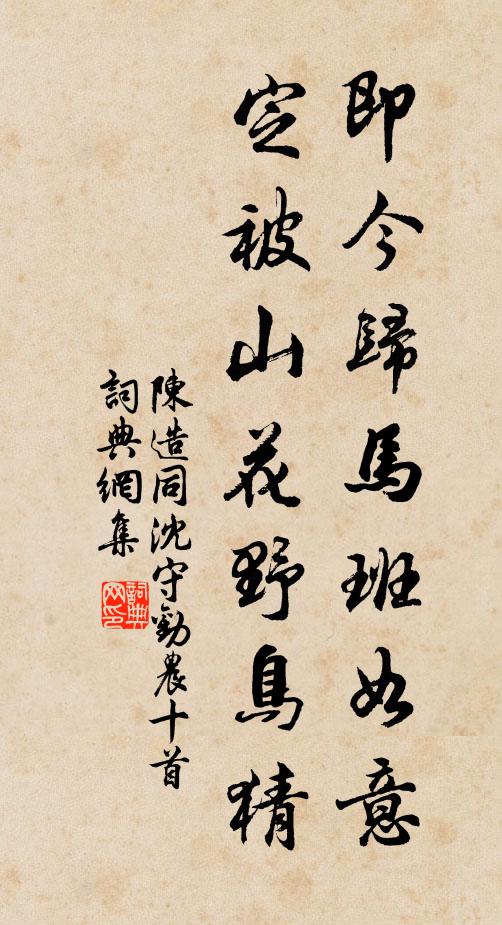 即今歸馬班如意
定被山花野鳥猜
陳造同沈守勸農十首
詞典網集
詞典网印